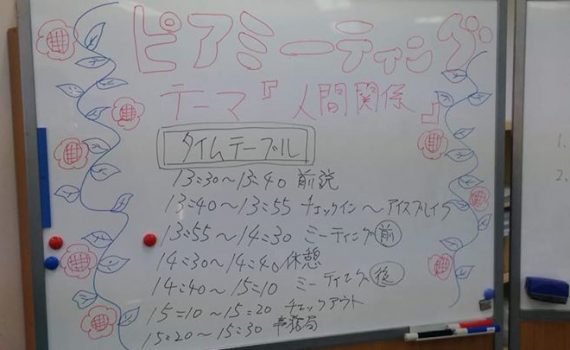 ピアミーティング
テーマ『人間関係』
タイムテーブル
13:30〜13:40 前説
13:40〜13:55 チェックイン〜アイスブレイク
13:55〜14:30 ミーティング前
14:30〜14:40 休憩
14:40〜15:10 ミーティング後
15:10〜15:20 チェックアウト
15:20〜15:30 事務局
1.
2.